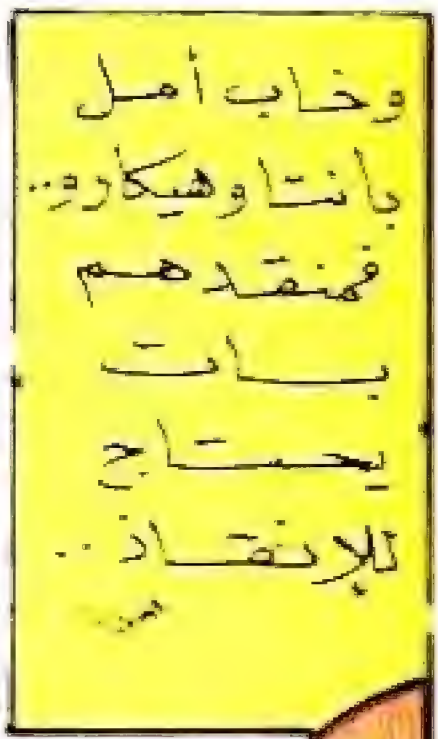 وخاب أمل
بانتا وهيكارو..
فمنقدهم
بات
يحتاج
للإنقاذ..